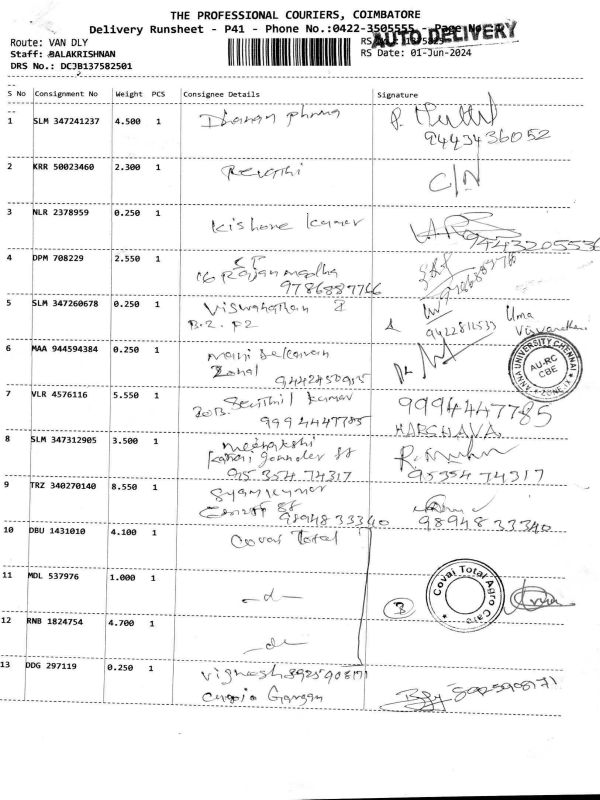 THE PROFESSIONAL COURIERS, COIMBATORE
Delivery Runsheet - P41 - Phone No.:0422-3505555 - Page No
AUTO DELIVERY
Route: VAN DLY
Staff: BALAKRISHNAN
RS Date: 01-Jun-2024
DRS No.: DCJB137582501
S No Consignment No Weight PCS Consignee Details Signature
1 SLM 347241237 4.500 1
9443436052
2 KRR 50023460 2.300 1 Revathi C/N
3 NLR 2378959 0.250 1 Kishore Kumar
9443205536
4 DPM 708229 2.550 1
9786887766
5 SLM 347260678 0.250 1 Viswanathan
B.2. F2
Uma
Viswanathan
6 MAA 944594384 0.250 1
Zonal
9442450915
ANNA UNIVERSITY CHENNAI
AU-RC
CBE
ZONE XI
7 VLR 4576116 5.550 1 Senthil Kumar 9994447785
9994447785 HARGHAVA
8 SLM 347312905 3.500 1 meenakshi
Gounder St
95354 74317 95354 74317
9 TRZ 340270140 8.550 1 Syamkumar
98948 33340 98948 33340
10 DBU 1431010 4.100 1 Covai Total
11 MDL 537976 1.000 1 -do-
3
Covai Total Agro Care
12 RNB 1824754 4.700 1 -do-
13 DDG 297119 0.250 1 Vignesh 8925908171
8925908171